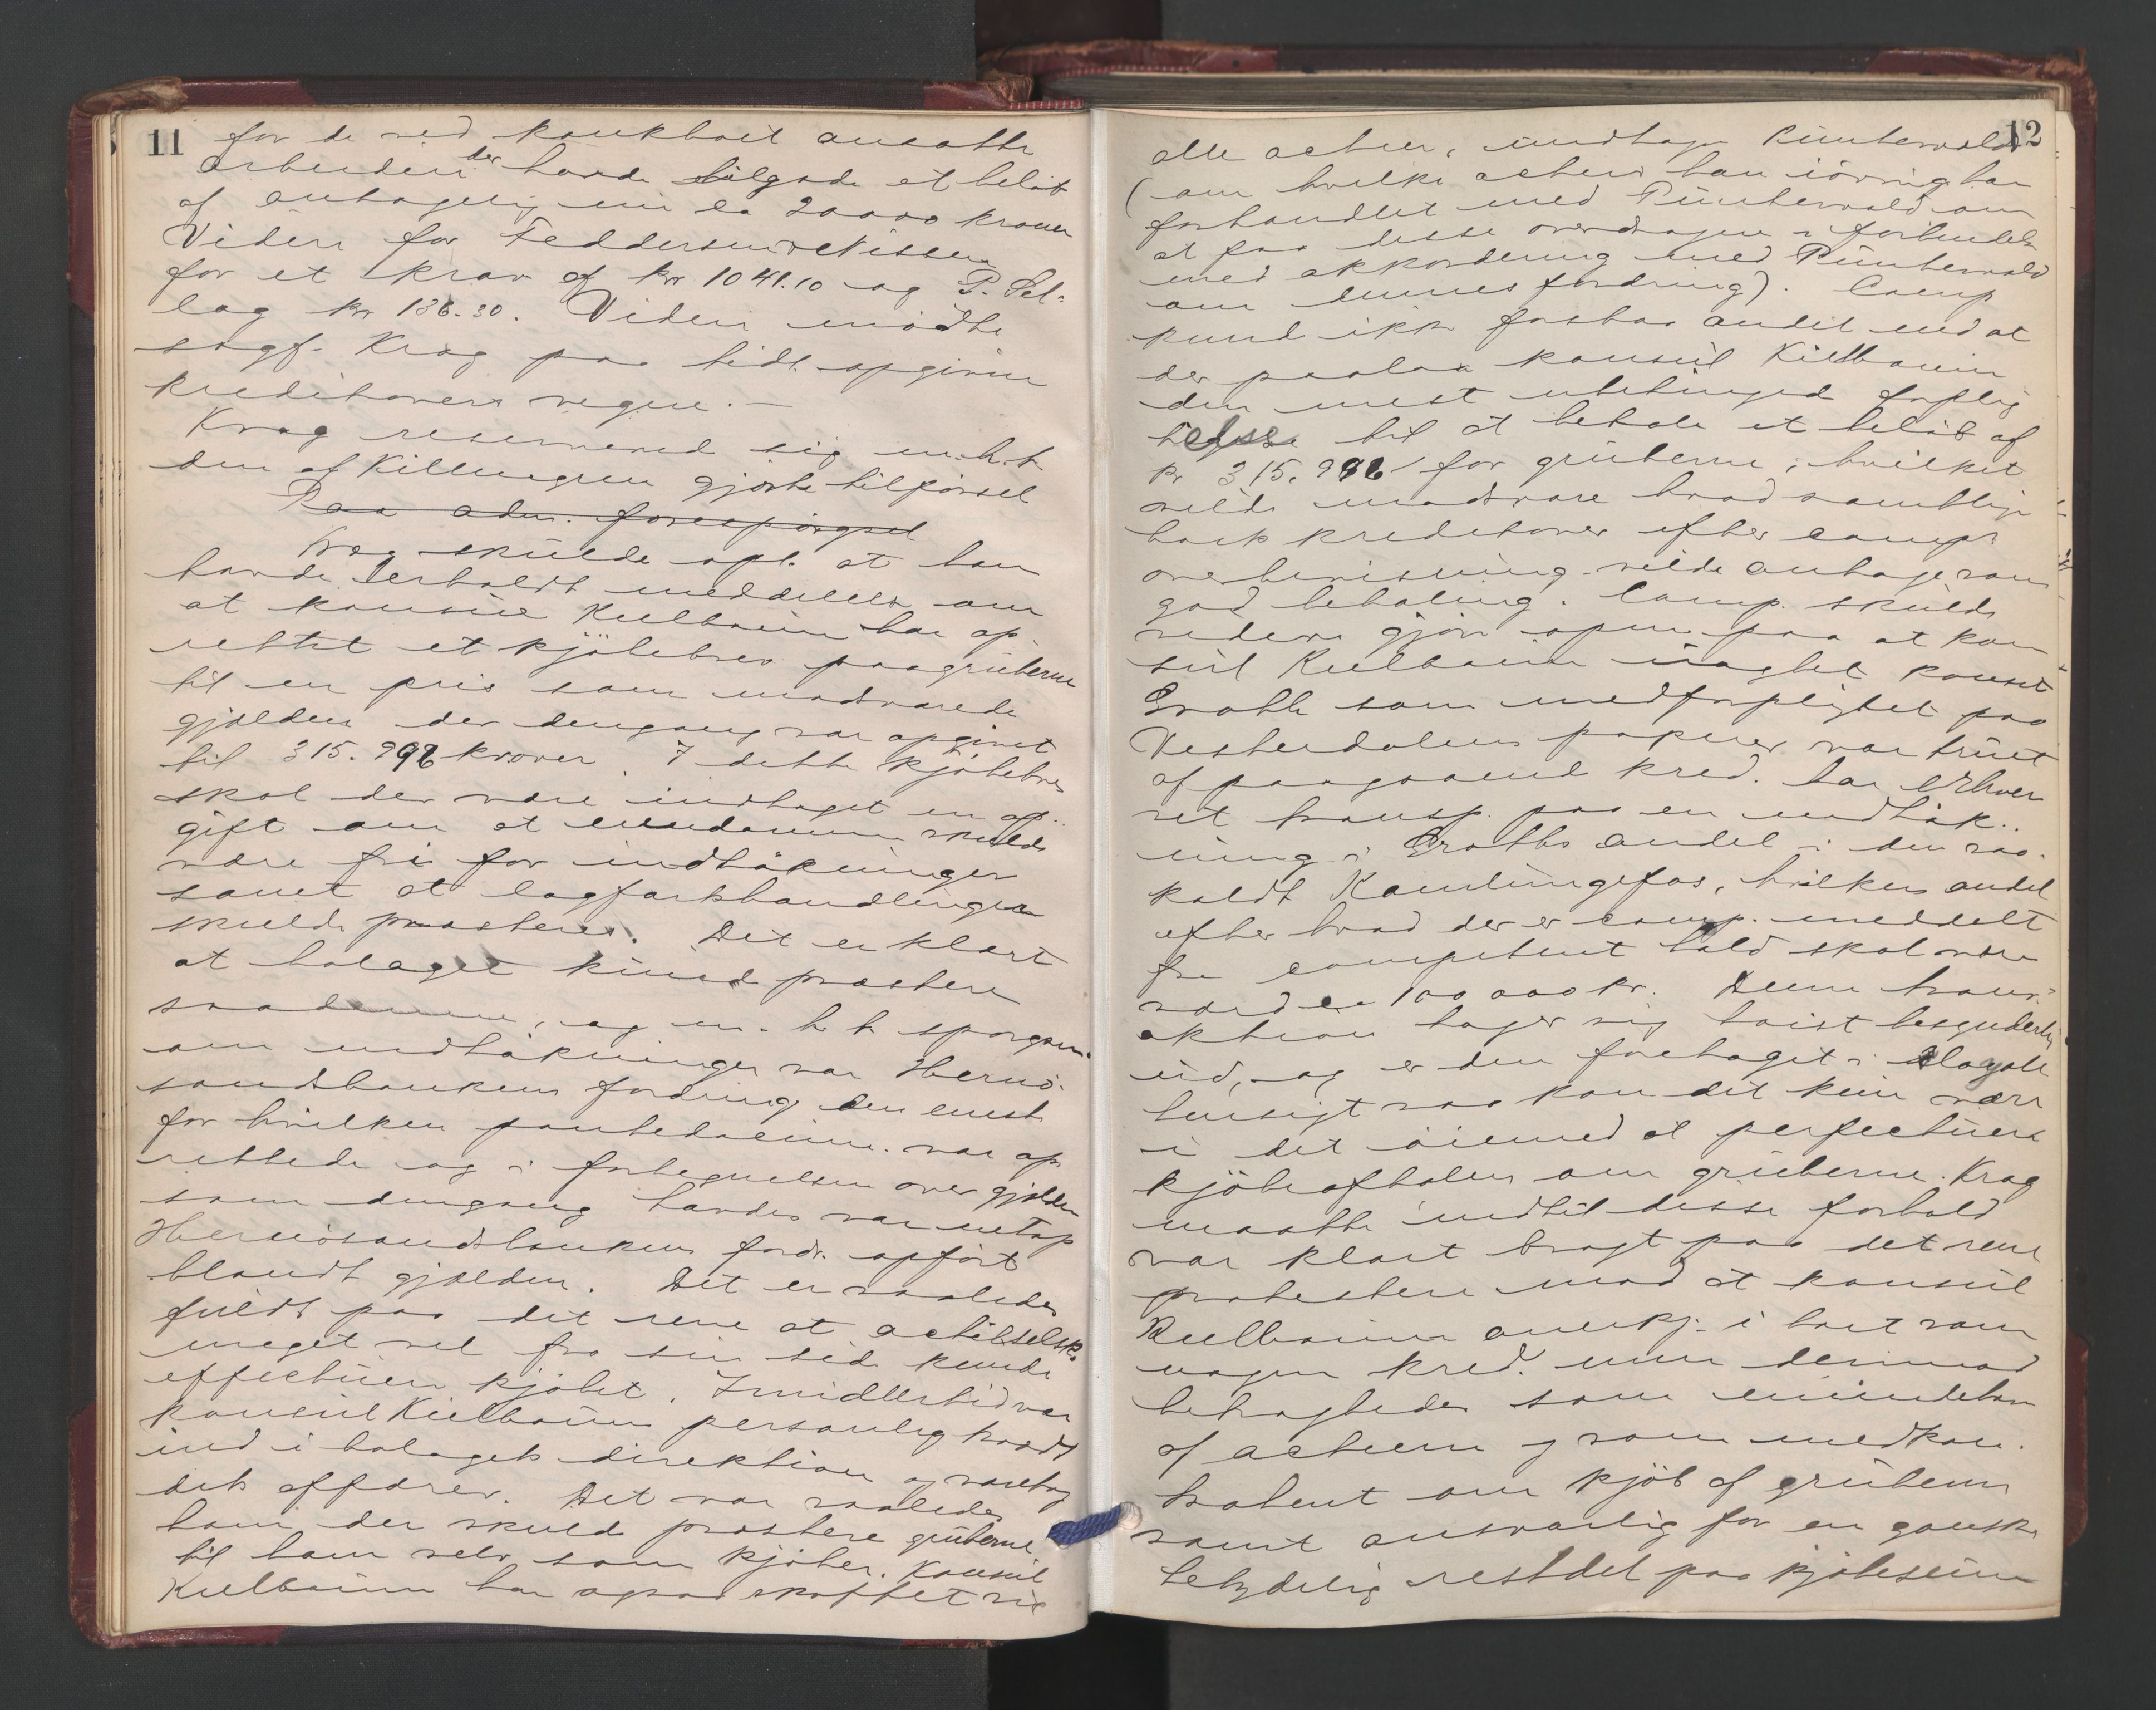 11
for de ved konkboet ansatte
arbeidere der havde tilgode et beløb
af antagelig em ca 20000 kroner
Videre for Feddersen & Nissen
for et krav af kr 1041.10 og P. Sel-
lag kr 136.30. Videre mødte
sagf. Krag paa tidl. opgivne
kreditorers vegne. —
Krag reserverede sig m.h.t.
den af Killengren gjorte tilførsel
Paa adm. forespørgsel
Krag skulde opl. at han
havde erholdt meddelelse om
at konsul Kielbaum har op-
rettet et kjøbebrev paa gruberne
til en pris som modsvarede
gjælden der dengang var opgivet
til 315.996 kroner. I dette kjøbebrev
skal der være indtaget en op-
gift om at eiendommen skulde
være fri for indtäkninger
samt at lagfartshandlingen
skulde præsteres. Det er klart
at bolaget kunde præstere
saadanne, og m.h.t. spørgsm.
om indtäkninger var Hernø-
sandsbankens fordring den eneste
for hvilken pantedocum. var op-
rettede og i fortegnelsen over gjælden
som dengang havdes var netop
Hernøsandsbankens fordr. opført
blandt gjælden. Det er saaledes
fuldt paa det rene at actieselsk.
meget vel fra sin side kunde
effectuere kjøbet. Imidlertid var
konsul Kielbaum personlig traadt
ind i bolagets direktion og varetog
dets affærer. Det var saaledes
ham der skulde præstere gruberne
til ham selv som kjøber. Konsul
Kielbaum har ogsaa skaffet sig
12
alle actier, undtagen Rünterwolds
(om hvilke actier han iøvrig har
forhandlet med Rünterwold om
at faa disse overdragne i forbindelse
med akkordering med Rünterwold
om dennes fordring). Comp.
kunde ikke forstaa andet end at
der paalaa konsul Kielbaum
den mest ubetingede forplig
telse til at betale et beløb af
kr 315.996 for gruberne, hvilket
vilde modsvare hvad samtlige
boets kreditorer efter comp.
overbevisning vilde antage som
god betaling. Comp. skulde
videre gjøre opm. paa at kon
sul Kielbaum uagtet konsul
Grotte som medforpligtet paa
Vesterdalens papirer var truet
af paagaaende kred. har erhver
vet transp. paa en indtäk-
ning i Grottes andel i den saa-
kaldt Kamlungefos, hvilken andel
efter hvad der er comp. meddelt
fra competent hold skal være
værd ca 100 000 kr. Denne trans-
aktion tager sig høist besynderlig
ud, og er den foretaget i illoyale
hensigt saa kan det kun være
i det øiemed at perfectuere
kjøbeaftalen om gruberne. Krag
maatte indtil disse forhold
var klart bragt paa det rene
protestere mod at konsul
Kielbaum anerkj. i boet som
nogen kred. men derimod
betragtedes som eiendeler
af actierne og som medkon-
trahent om kjøb af gruberne
samt ansvarlig for en ganske
betydelig restdel paa kjøbesum